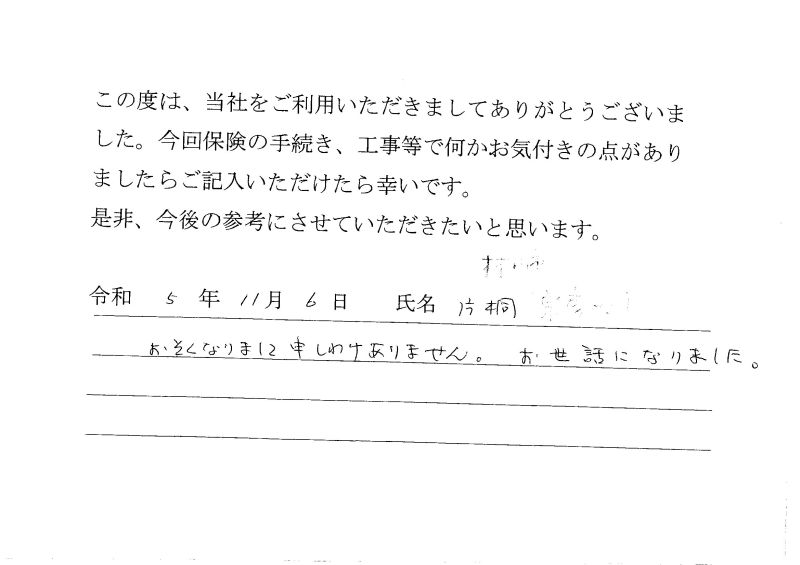 この度は、当社をご利用いただきましてありがとうございま
した。今回保険の手続き、工事等で何かお気付きの点があり
ましたらご記入いただけたら幸いです。
是非、今後の参考にさせていただきたいと思います。
令和 5 年 11月 6 日 氏名 片桐
おそくなりまして申しわけありません。 お世話になりました。